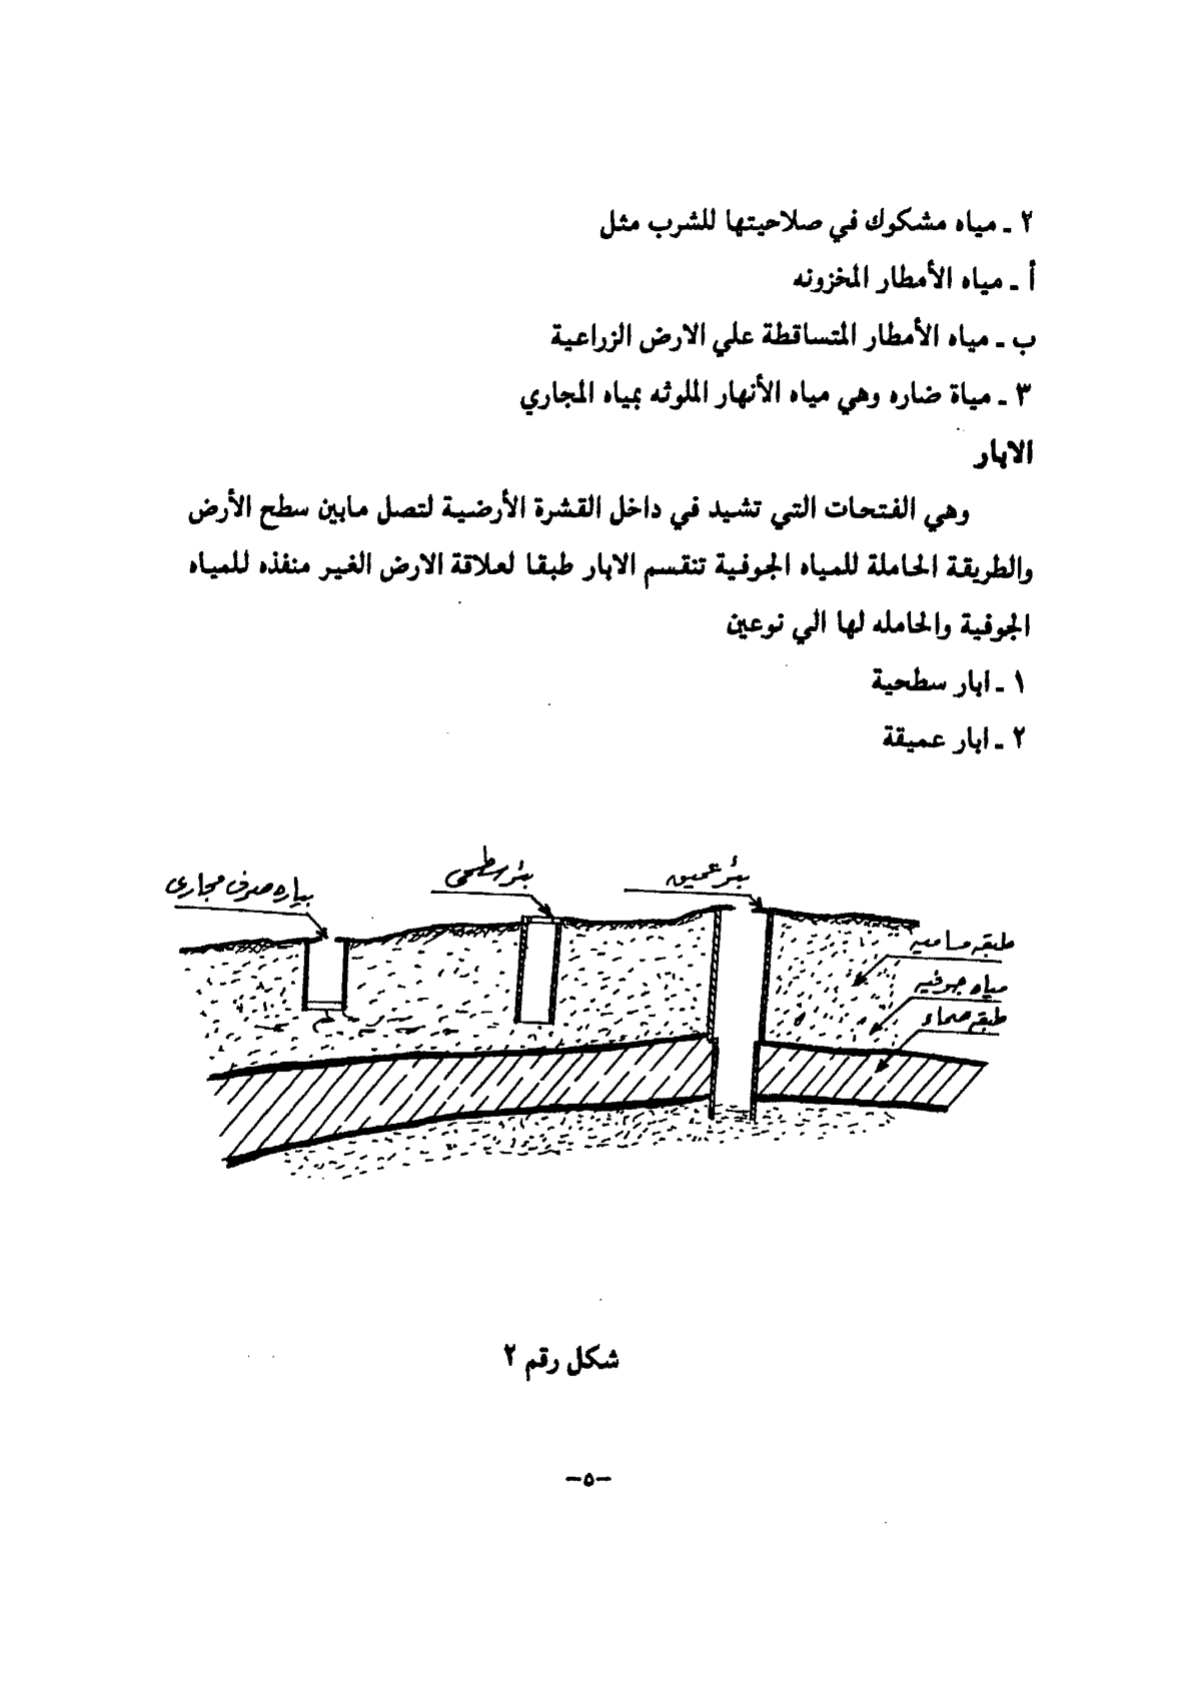 ٢ ـ مياه مشكوك في صلاحيتها للشرب مثل
أ ـ مياه الأمطار المخزونه
ب ـ مياه الأمطار المتساقطة علي الارض الزراعية
٣ ـ مياة ضاره وهي مياه الأنهار الملوثه بمياه المجاري
الابار
وهي الفتحات التي تشيد في داخل القشرة الأرضية لتصل مابين سطح الأرض
والطريقة الحاملة للمياه الجوفية تنقسم الابار طبقا لعلاقة الارض الغير منفذه للمياه
الجوفية والحامله لها الي نوعين
١ ـ ابار سطحية
٢ ـ ابار عميقة
بئر عميق
بئر سطحى
بياره صرف مجارى
طبقه مساميه
مياه جوفيه
طبقه صماء
شكل رقم ٢
-٥-